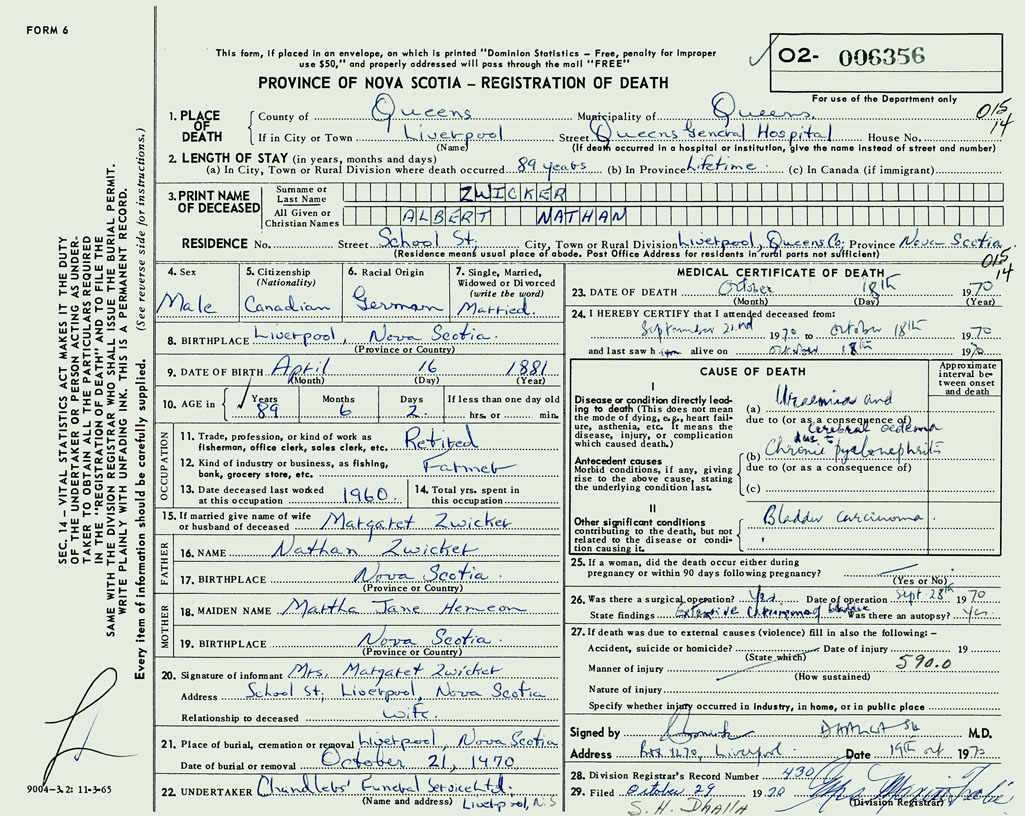 FORM 6
This form, if placed in an envelope, on which is printed "Dominion Statistics – Free, penalty for improper
use $50," and properly addressed will pass through the mail "FREE"
O2- 006356
PROVINCE OF NOVA SCOTIA – REGISTRATION OF DEATH
For use of the Department only
015
14
1. PLACE OF DEATH
County of Queens Municipality of Queens.
If in City or Town Liverpool Street Queens General Hospital House No.
(Name) (If death occurred in a hospital or institution, give the name instead of street and number)
2. LENGTH OF STAY (in years, months and days)
(a) In City, Town or Rural Division where death occurred 89 years (b) In Province Lifetime. (c) In Canada (if immigrant)
3. PRINT NAME OF DECEASED
Surname or Last Name ZWICKER
All Given or Christian Names ALBERT NATHAN
RESIDENCE No. Street School St. City, Town or Rural Division Liverpool, Queens Co; Province Nova Scotia.
(Residence means usual place of abode. Post Office Address for residents in rural parts not sufficient)
015
14
4. Sex Male
5. Citizenship (Nationality) Canadian
6. Racial Origin German
7. Single, Married, Widowed or Divorced (write the word) Married.
8. BIRTHPLACE Liverpool, Nova Scotia.
(Province or Country)
9. DATE OF BIRTH April 16 1881
(Month) (Day) (Year)
10. AGE in Years 89 Months 6 Days 2 If less than one day old hrs. or min.
OCCUPATION
11. Trade, profession, or kind of work as fisherman, office clerk, sales clerk, etc. Retired
12. Kind of industry or business, as fishing, bank, grocery store, etc. Farmer
13. Date deceased last worked at this occupation 1960.
14. Total yrs. spent in this occupation
15. If married give name of wife or husband of deceased Margaret Zwicker
FATHER
16. NAME Nathan Zwicker
17. BIRTHPLACE Nova Scotia.
(Province or Country)
MOTHER
18. MAIDEN NAME Martha Jane Hemeon
19. BIRTHPLACE Nova Scotia.
(Province or Country)
20. Signature of informant Mrs. Margaret Zwicker
Address School St, Liverpool, Nova Scotia
Relationship to deceased wife.
21. Place of burial, cremation or removal Liverpool, Nova Scotia
Date of burial or removal October 21, 1970
22. UNDERTAKER Chandlers' Funeral Service Ltd.
(Name and address) Liverpool, N.S
MEDICAL CERTIFICATE OF DEATH
23. DATE OF DEATH October 18th 1970
(Month) (Day) (Year)
24. I HEREBY CERTIFY that I attended deceased from:
September 22nd 1970 to October 18th 1970
and last saw him alive on October 18th 1970
CAUSE OF DEATH
Approximate interval between onset and death
I
Disease or condition directly leading to death (This does not mean the mode of dying, e.g., heart failure, asthenia, etc. It means the disease, injury, or complication which caused death.)
(a) Uraemia and
due to (or as a consequence of)
Cerebral oedema
due to
Antecedent causes
Morbid conditions, if any, giving rise to the above cause, stating the underlying condition last.
(b) Chronic pyelonephritis
due to (or as a consequence of)
(c)
II
Other significant conditions contributing to the death, but not related to the disease or condition causing it.
Bladder carcinoma.
25. If a woman, did the death occur either during pregnancy or within 90 days following pregnancy?
(Yes or No)
26. Was there a surgical operation? Yes. Date of operation Sept 28th 1970
State findings Extensive carcinoma of bladder Was there an autopsy? Yes.
27. If death was due to external causes (violence) fill in also the following: –
Accident, suicide or homicide? Date of injury 19
(State which)
590.0
Manner of injury
(How sustained)
Nature of injury
Specify whether injury occurred in industry, in home, or in public place
Signed by DHALLA SH M.D.
Address Box 1270, Liverpool. Date 19th Oct 1970
28. Division Registrar's Record Number 430
29. Filed October 29 1970
(Division Registrar)
S. H. Dhalla
SEC. 14 – VITAL STATISTICS ACT MAKES IT THE DUTY
OF THE UNDERTAKER OR PERSON ACTING AS UNDER-
TAKER TO OBTAIN ALL THE PARTICULARS REQUIRED
IN THE "REGISTRATION OF DEATH" AND TO FILE THE
SAME WITH THE DIVISION REGISTRAR WHO SHALL ISSUE THE BURIAL PERMIT.
WRITE PLAINLY WITH UNFADING INK. THIS IS A PERMANENT RECORD.
Every item of information should be carefully supplied. (See reverse side for instructions.)
9004-3.2: 11-3-65